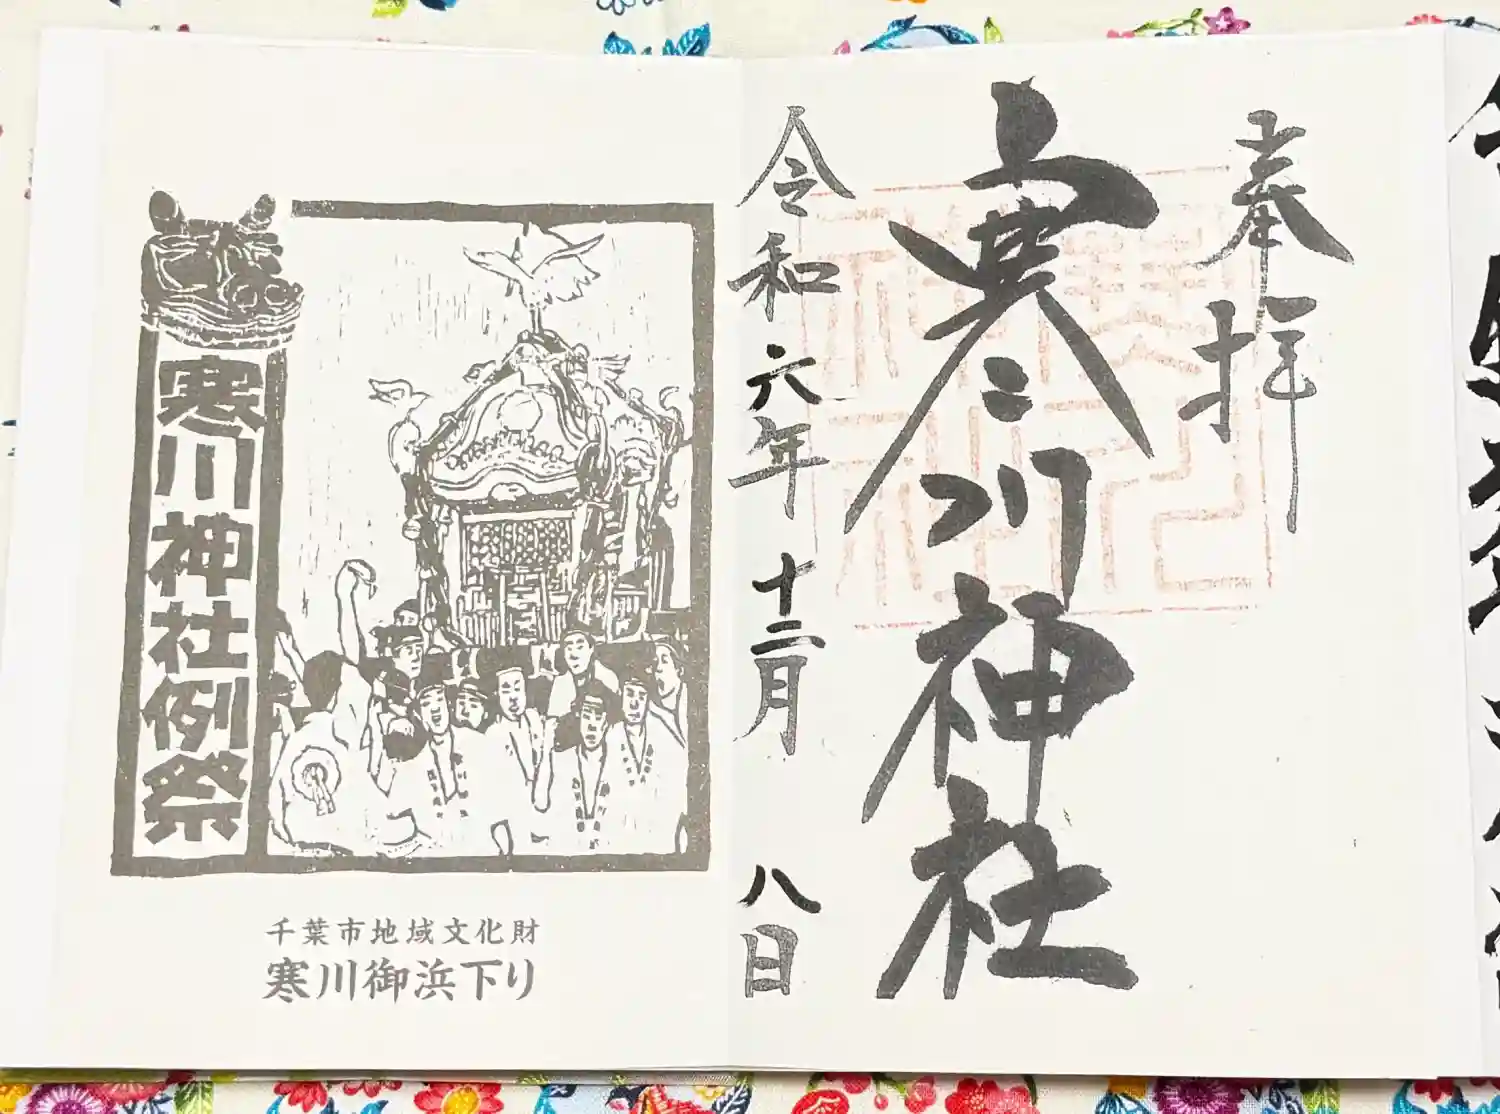 奉拝
寒川神社
令和六年十二月八日
寒川神社例祭
千葉市地域文化財
寒川御浜下り